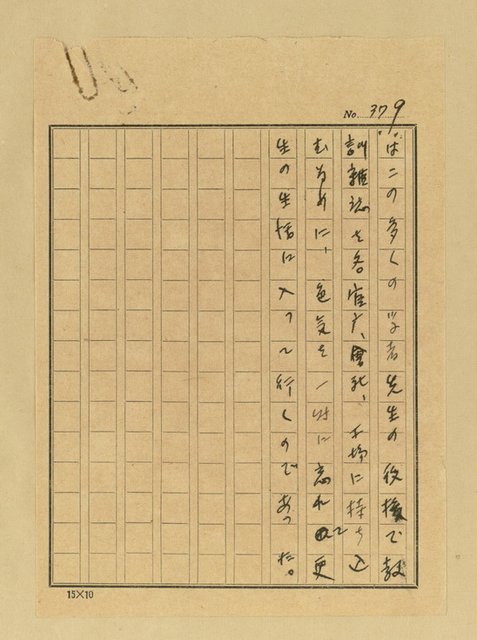 No. 379
はこの多くの学者先生の後援で教
訓雑誌を各官庁、會社、工場に持ち込
むために、色気を一時に忘れて更
生の生活に入つて行くのであつた。
15×10